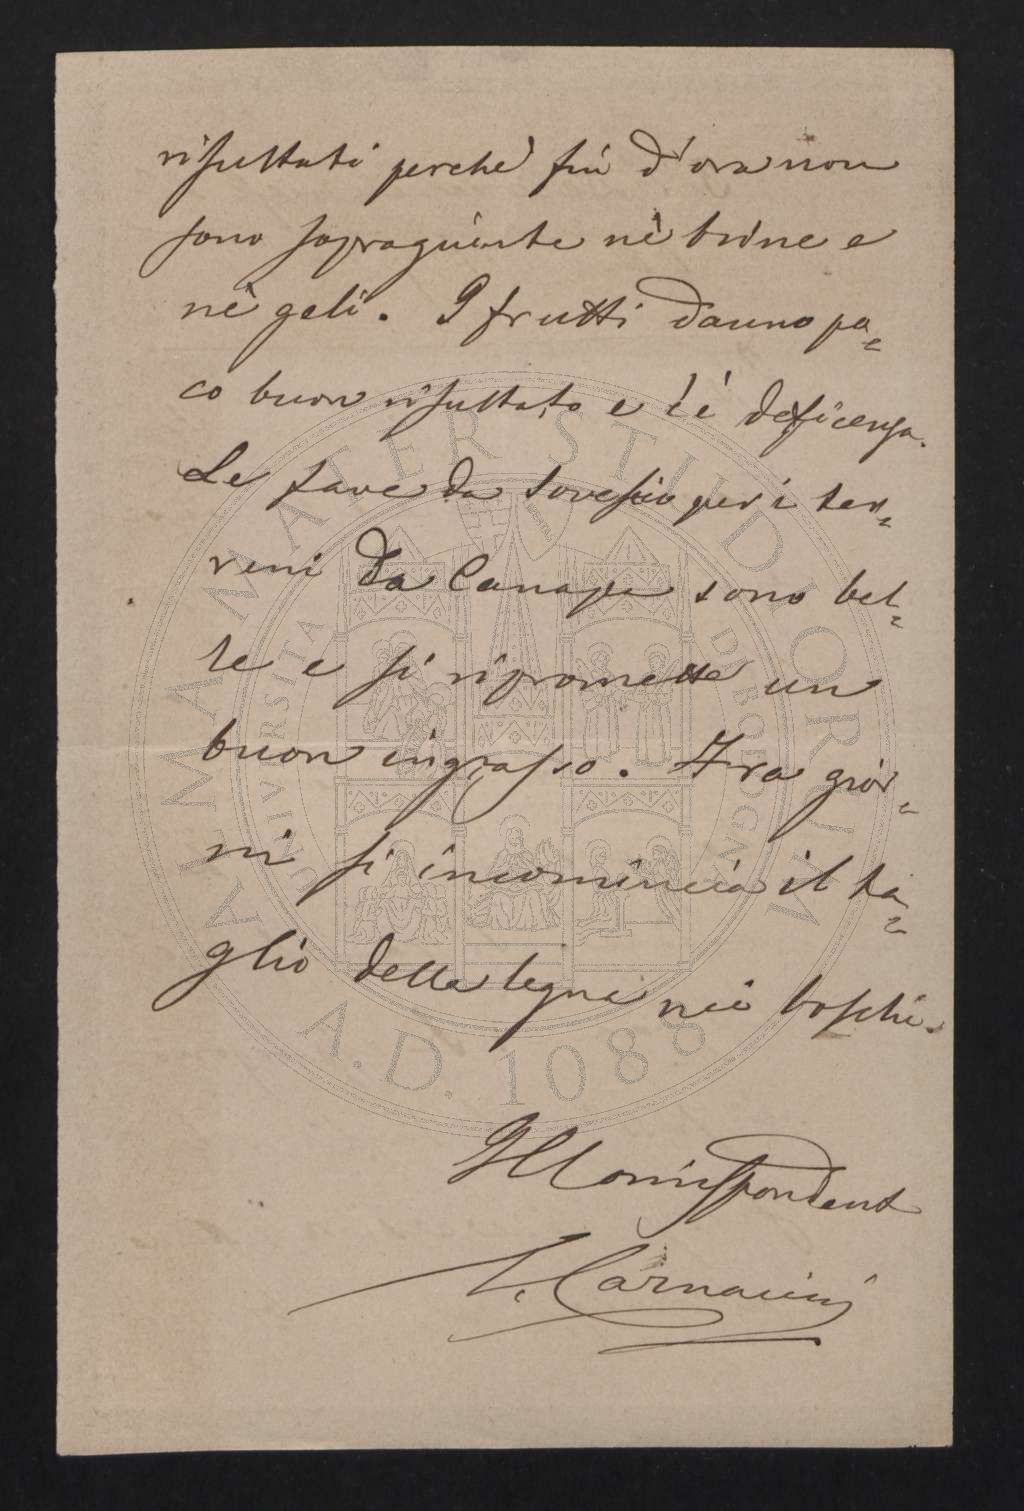 risultati perchè fin d'ora non
sono sopraguinte nè brine e
nè geli. I frutti danno po=
co buon risultato e c'è deficenza.
Le fave da sovescio per i ter=
reni da Canapa sono bel=
le e si ripromette un
buon ingrasso. Fra gior=
ni si incomincia il ta=
glio della legna nei boschi.
Il Corrispondent
Carnacini
ALMA MATER STUDIORUM
UNIVERSITÀ DI BOLOGNA
A.D. 1088